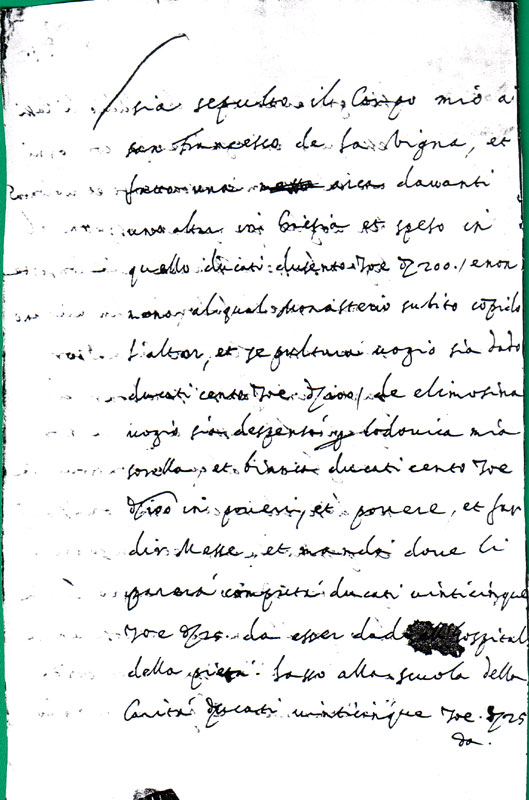 sia sepulto il Corpo mio à
san francesco de la vigna, et
fatto una arca davanti
uno altar in Chiesia et speso in
quello ducati dusento zoe d 200 / e non
mono al qual Monasterio subito cōpido
l'altar, et sepultura uogio sia dado
ducati cento zoe d 100 / de elimosina
uogio sia despensá p lodovica mia
sorella, et bianca ducati cento zoe
d 100 in poueri, et pouere, et far
dir Messe, et mandi doue li
parerá compita ducati uinticinque
zoe d 25 da esser dadi hospital
della pietá. lasso alla scuola della
Caritá ducati uinticinque zoe d 25
da.